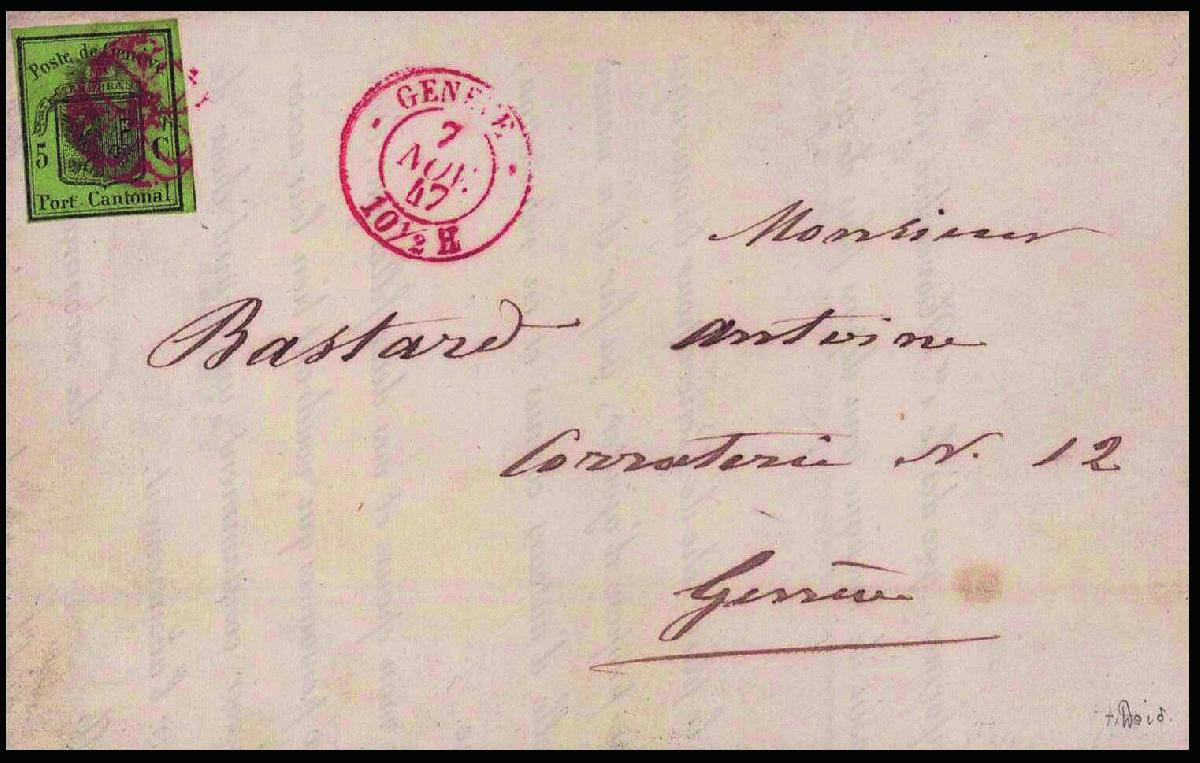 Poste de Genève
5 C
Port Cantonal
GENEVE
7
NOV.
47
10½ H
Monsieur
Bastard Antoine
Corraterie N. 12
Genève